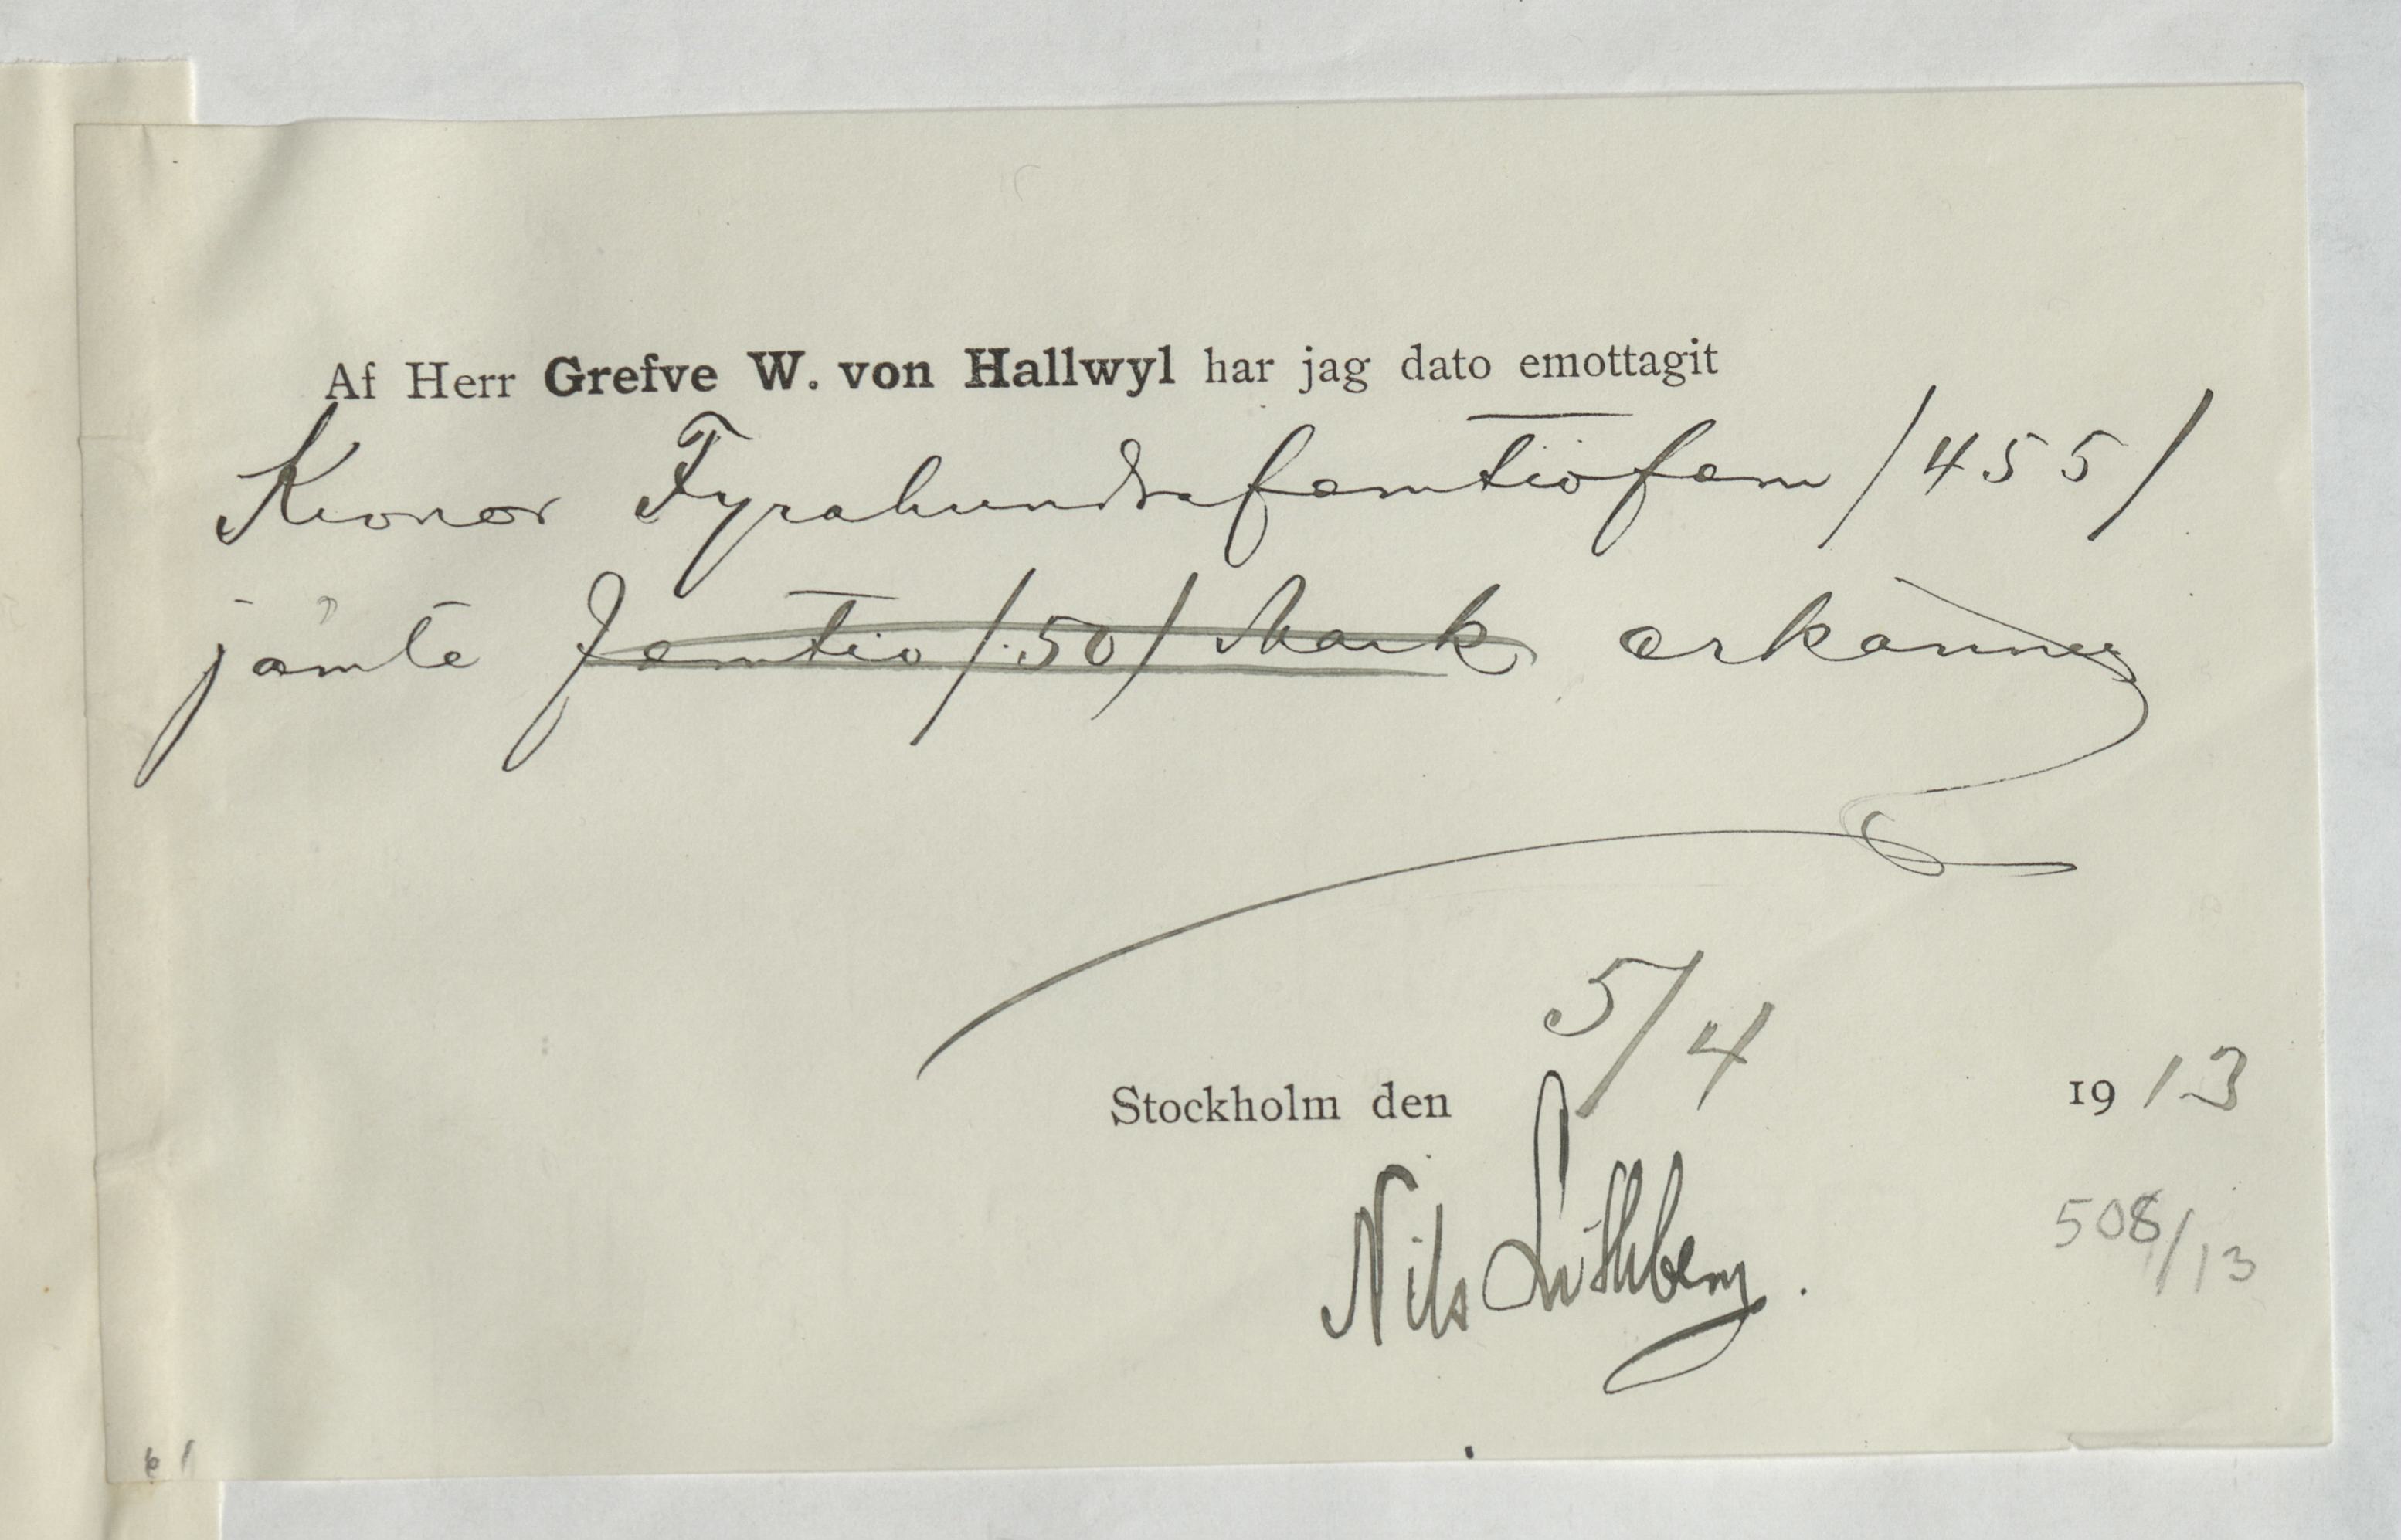 Af Herr Grefve W. von Hallwyl har jag dato emottagit
Kronor Fyrahundrafemtiofem /455/
jämte femtio /50/ Mark erkännes
5/4
Stockholm den 1913
Nils
508/13